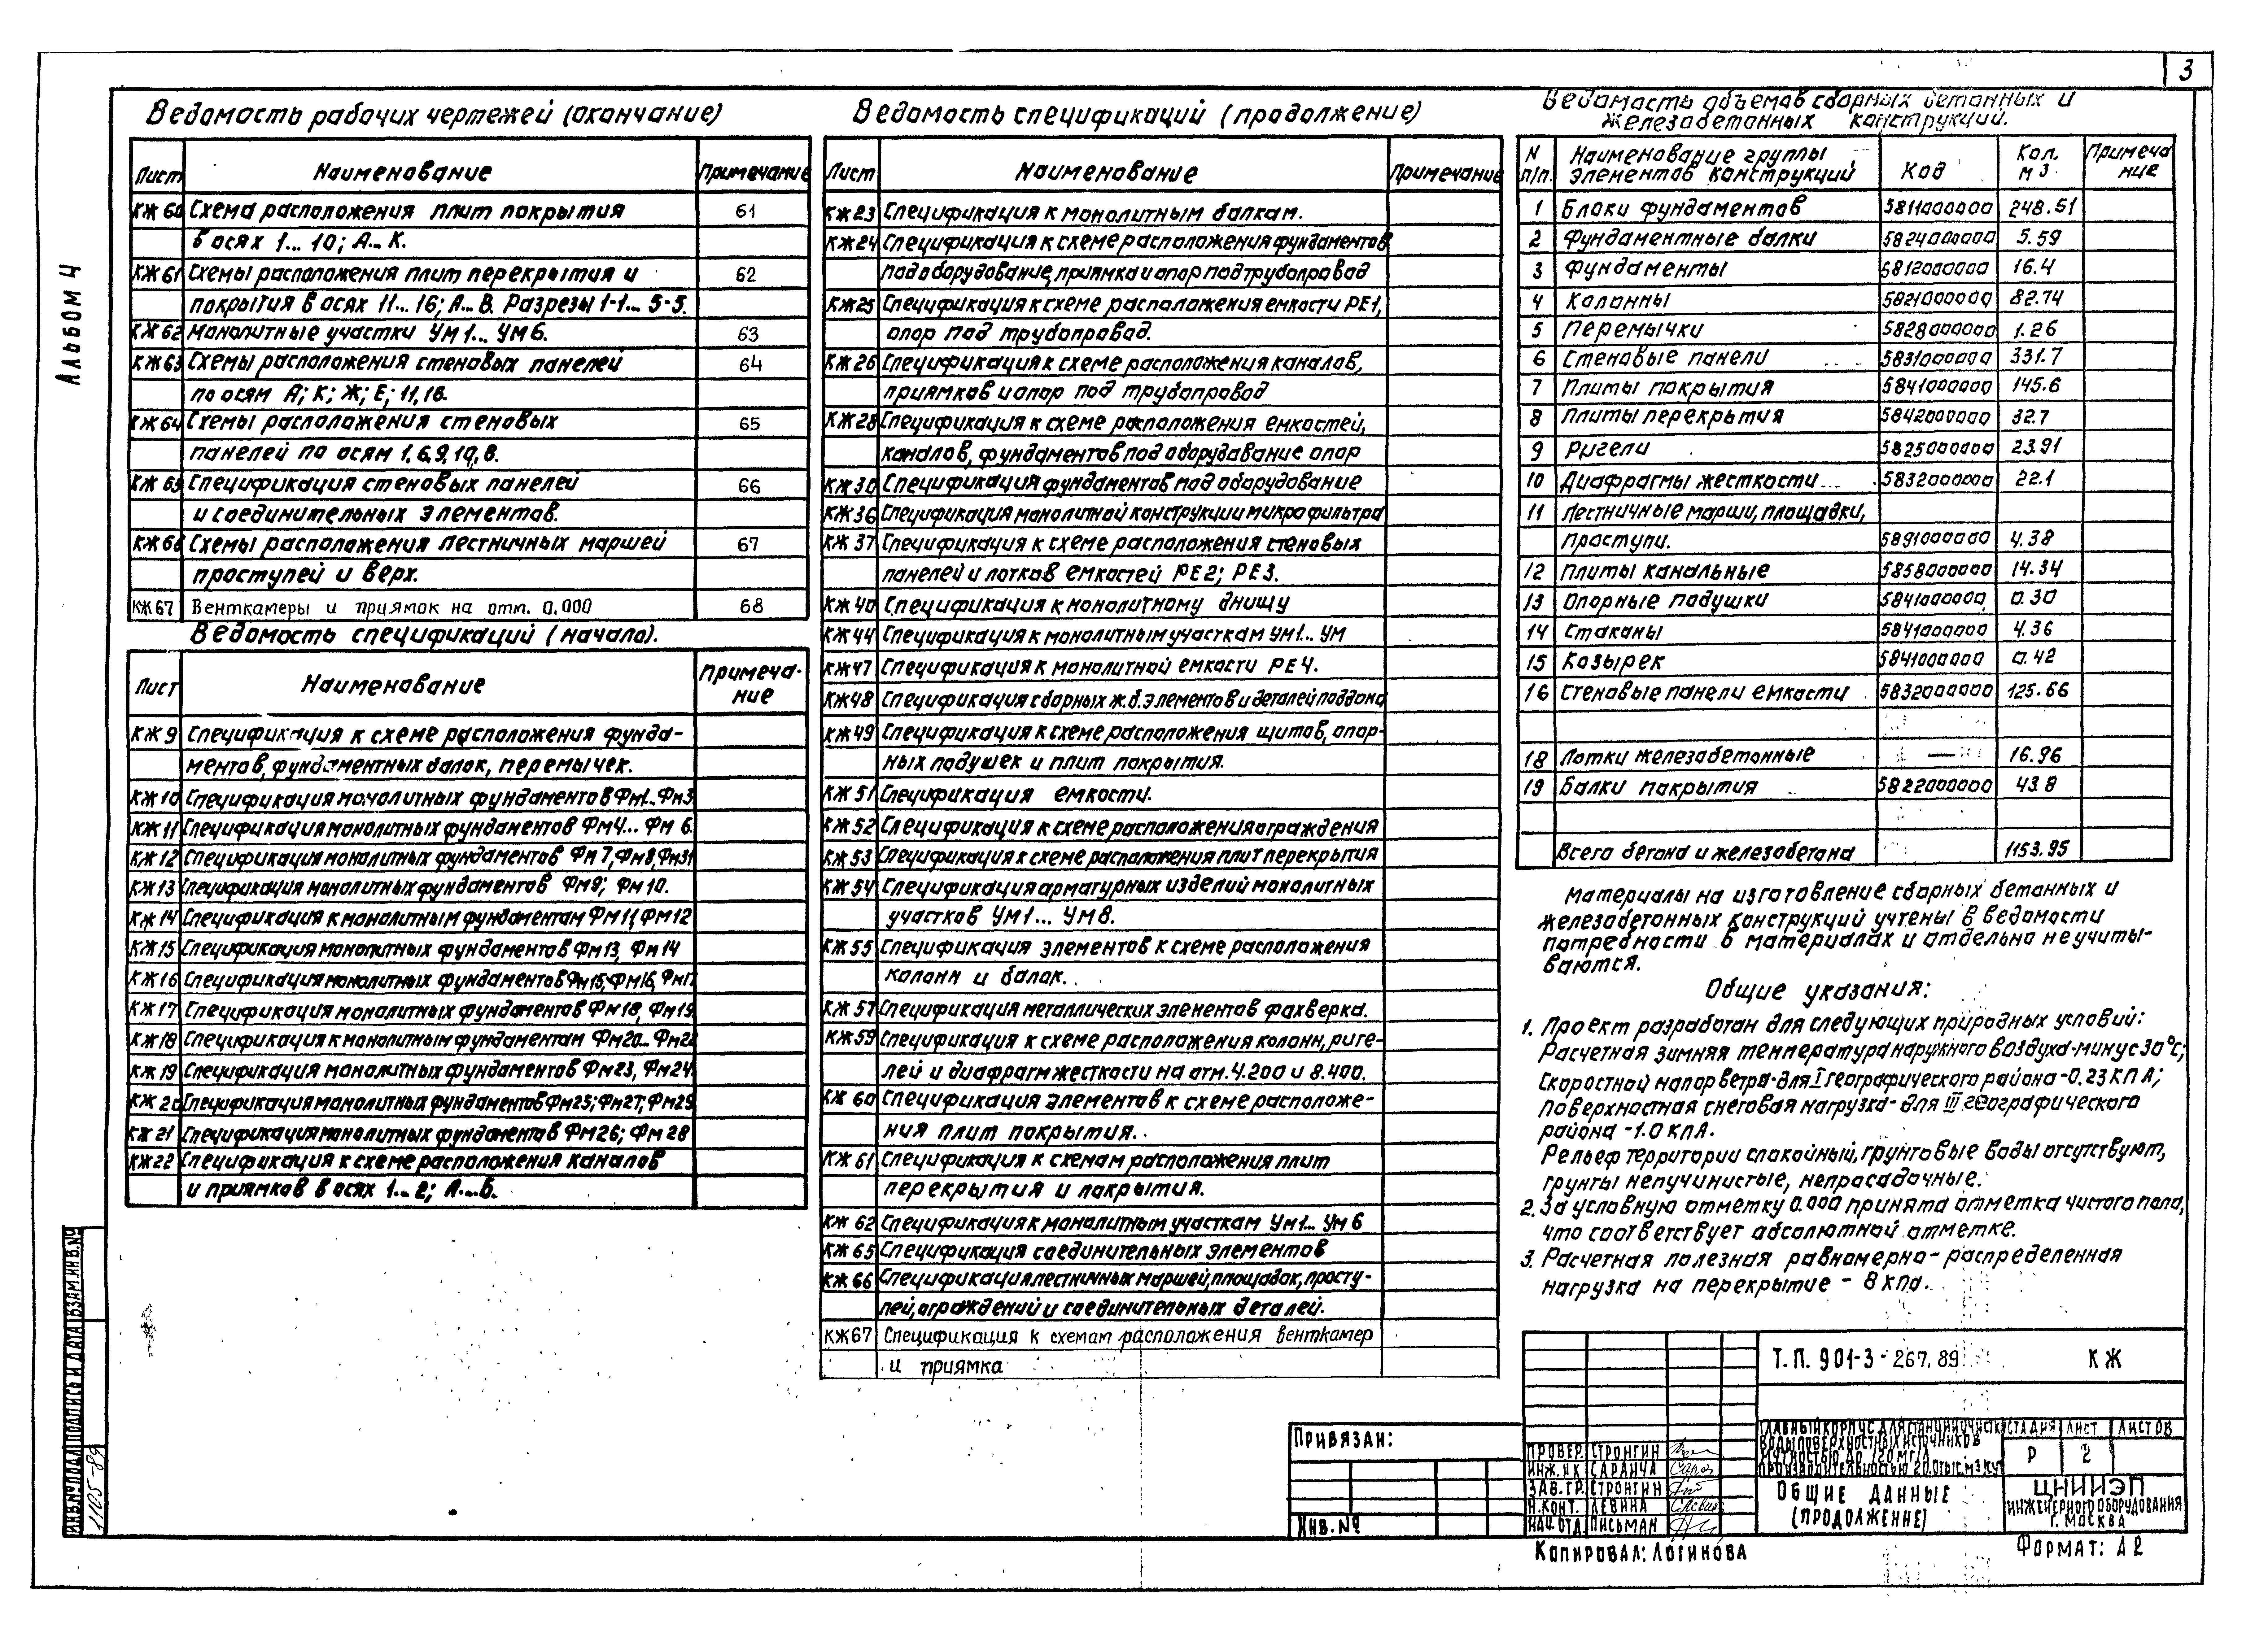 3
Альбом 4
Ведомость рабочих чертежей (окончание)
Лист Наименование Примечание
КЖ 60 Схема расположения плит покрытия 61
в осях 1... 10; А... К.
КЖ 61 Схемы расположения плит перекрытия и 62
покрытия в осях 11... 16; А... В. Разрезы 1-1... 5-5.
КЖ 62 Монолитные участки УМ1... УМ6. 63
КЖ 63 Схемы расположения стеновых панелей 64
по осям А; К; Ж; Е; 11, 16.
КЖ 64 Схемы расположения стеновых 65
панелей по осям 1, 6, 9, 10, В.
КЖ 65 Спецификация стеновых панелей 66
и соединительных элементов.
КЖ 66 Схемы расположения лестничных маршей 67
проступей и верх.
КЖ 67 Венткамеры и приямок на отм. 0,000 68
Ведомость спецификаций (начало).
Лист Наименование Примеча-
ние
КЖ 9 Спецификация к схеме расположения фунда-
ментов, фундаментных балок, перемычек.
КЖ 10 Спецификация монолитных фундаментов Фм1... Фм3
КЖ 11 Спецификация монолитных фундаментов ФМ4... ФМ 6.
КЖ 12 Спецификация монолитных фундаментов Фм 7, Фм 8, Фм31
КЖ 13 Спецификация монолитных фундаментов Фм9; Фм 10.
КЖ 14 Спецификация к монолитным фундаментам ФМ 11, ФМ 12
КЖ 15 Спецификация монолитных фундаментов Фм 13, Фм 14
КЖ 16 Спецификация монолитных фундаментов Фм15; ФМ16, Фм17
КЖ 17 Спецификация монолитных фундаментов Фм 18, Фм 19.
КЖ 18 Спецификация к монолитным фундаментам Фм20... Фм22
КЖ 19 Спецификация монолитных фундаментов Фм 23, Фм 24.
КЖ 20 Спецификация монолитных фундаментов Фм25; Фм27, Фм29
КЖ 21 Спецификация монолитных фундаментов ФМ 26; ФМ 28
КЖ 22 Спецификация к схеме расположения каналов
и приямков в осях 1... 2; А...Б.
Ведомость спецификаций (продолжение)
Лист Наименование Примечание
КЖ 23 Спецификация к монолитным балкам.
КЖ 24 Спецификация к схеме расположения фундаментов
под оборудование, приямка и опор под трубопровод
КЖ 25 Спецификация к схеме расположения емкости РЕ1,
опор под трубопровод.
КЖ 26 Спецификация к схеме расположения каналов,
приямков и опор под трубопровод
КЖ 28 Спецификация к схеме расположения емкостей,
каналов, фундаментов под оборудование опор
КЖ 30 Спецификация фундаментов под оборудование
КЖ 36 Спецификация монолитной конструкции микрофильтра
КЖ 37 Спецификация к схеме расположения стеновых
панелей и лотков емкостей РЕ2; РЕ3.
КЖ 40 Спецификация к монолитному днищу
КЖ 44 Спецификация к монолитным участкам УМ1... УМ
КЖ 47 Спецификация к монолитной емкости РЕ 4.
КЖ 48 Спецификация сборных ж.б. элементов и деталей поддона
КЖ 49 Спецификация к схеме расположения щитов, опор-
ных подушек и плит покрытия.
КЖ 51 Спецификация емкости.
КЖ 52 Спецификация к схеме расположения ограждения
КЖ 53 Спецификация к схеме расположения плит перекрытия
КЖ 54 Спецификация арматурных изделий монолитных
участков УМ1... УМ8.
КЖ 55 Спецификация элементов к схеме расположения
колонн и балок.
КЖ 57 Спецификация металлических элементов фахверка.
КЖ 59 Спецификация к схеме расположения колонн, риге-
лей и диафрагм жесткости на отм. 4.200 и 8.400.
КЖ 60 Спецификация элементов к схеме расположе-
ния плит покрытия.
КЖ 61 Спецификация к схемам расположения плит
перекрытия и покрытия.
КЖ 62 Спецификация к монолитным участкам Ум1... Ум 6
КЖ 65 Спецификация соединительных элементов
КЖ 66 Спецификация лестничных маршей, площадок, просту-
пей, ограждений и соединительных деталей.
КЖ67 Спецификация к схемам расположения венткамер
и приямка
Ведомость объемов сборных бетонных и
железобетонных конструкций.
N п/п. Наименование группы элементов конструкций Код Кол. м³ Примеча ние
1 Блоки фундаментов 5811000000 248.51
2 Фундаментные балки 5824000000 5.59
3 Фундаменты 5812000000 16.4
4 Колонны 5821000000 82.74
5 Перемычки 5828000000 1.26
6 Стеновые панели 5831000000 331.7
7 Плиты покрытия 5841000000 145.6
8 Плиты перекрытия 5842000000 32.7
9 Ригели 5825000000 23.91
10 Диафрагмы жесткости 5832000000 22.1
11 Лестничные марши, площадки,
проступи. 5891000000 4.38
12 Плиты канальные 5858000000 14.34
13 Опорные подушки 5841000000 0.30
14 Стаканы 5841000000 4.36
15 Козырек 5841000000 0.42
16 Стеновые панели емкости 5832000000 125.66
18 Лотки железобетонные — 16.96
19 Балки покрытия 5822000000 43.8
Всего бетона и железобетона 1153.95
Материалы на изготовление сборных бетонных и
железобетонных конструкций учтены в ведомости
потребности в материалах и отдельно не учиты-
ваются.
Общие указания:
1. Проект разработан для следующих природных условий:
Расчетная зимняя температура наружного воздуха-минус 30°С;
Скоростной напор ветра-для I географического района -0.23 КПА;
Поверхностная снеговая нагрузка-для III географического
района -1.0 КПА.
Рельеф территории спокойный, грунтовые воды отсутствуют,
грунты непучинистые, непросадочные.
2. За условную отметку 0.000 принята отметка чистого пола,
что соответствует абсолютной отметке.
3. Расчетная полезная равномерно-распределенная
нагрузка на перекрытие - 8 кПа.
Т.П. 901-3-267.89 КЖ
Главный корпус для станции очистки
воды поверхностных источников
мутностью до 120 мг/л
производительностью 20.0 тыс.м3/сут
Стадия Лист Листов
Р 2
Общие данные
(продолжение)
ЦНИИЭП
инженерного оборудования
г. Москва
Провер. Стронгин
Инж. IIк Саранча
Зав. гр. Стронгин
Н.конт. Левина
Нач.отд. Письман
Привязан:
Инв. №
Копировал: Логинова
Формат: А2
Инв.№ подл. Подпись и дата Взам.инв.№
1105-89